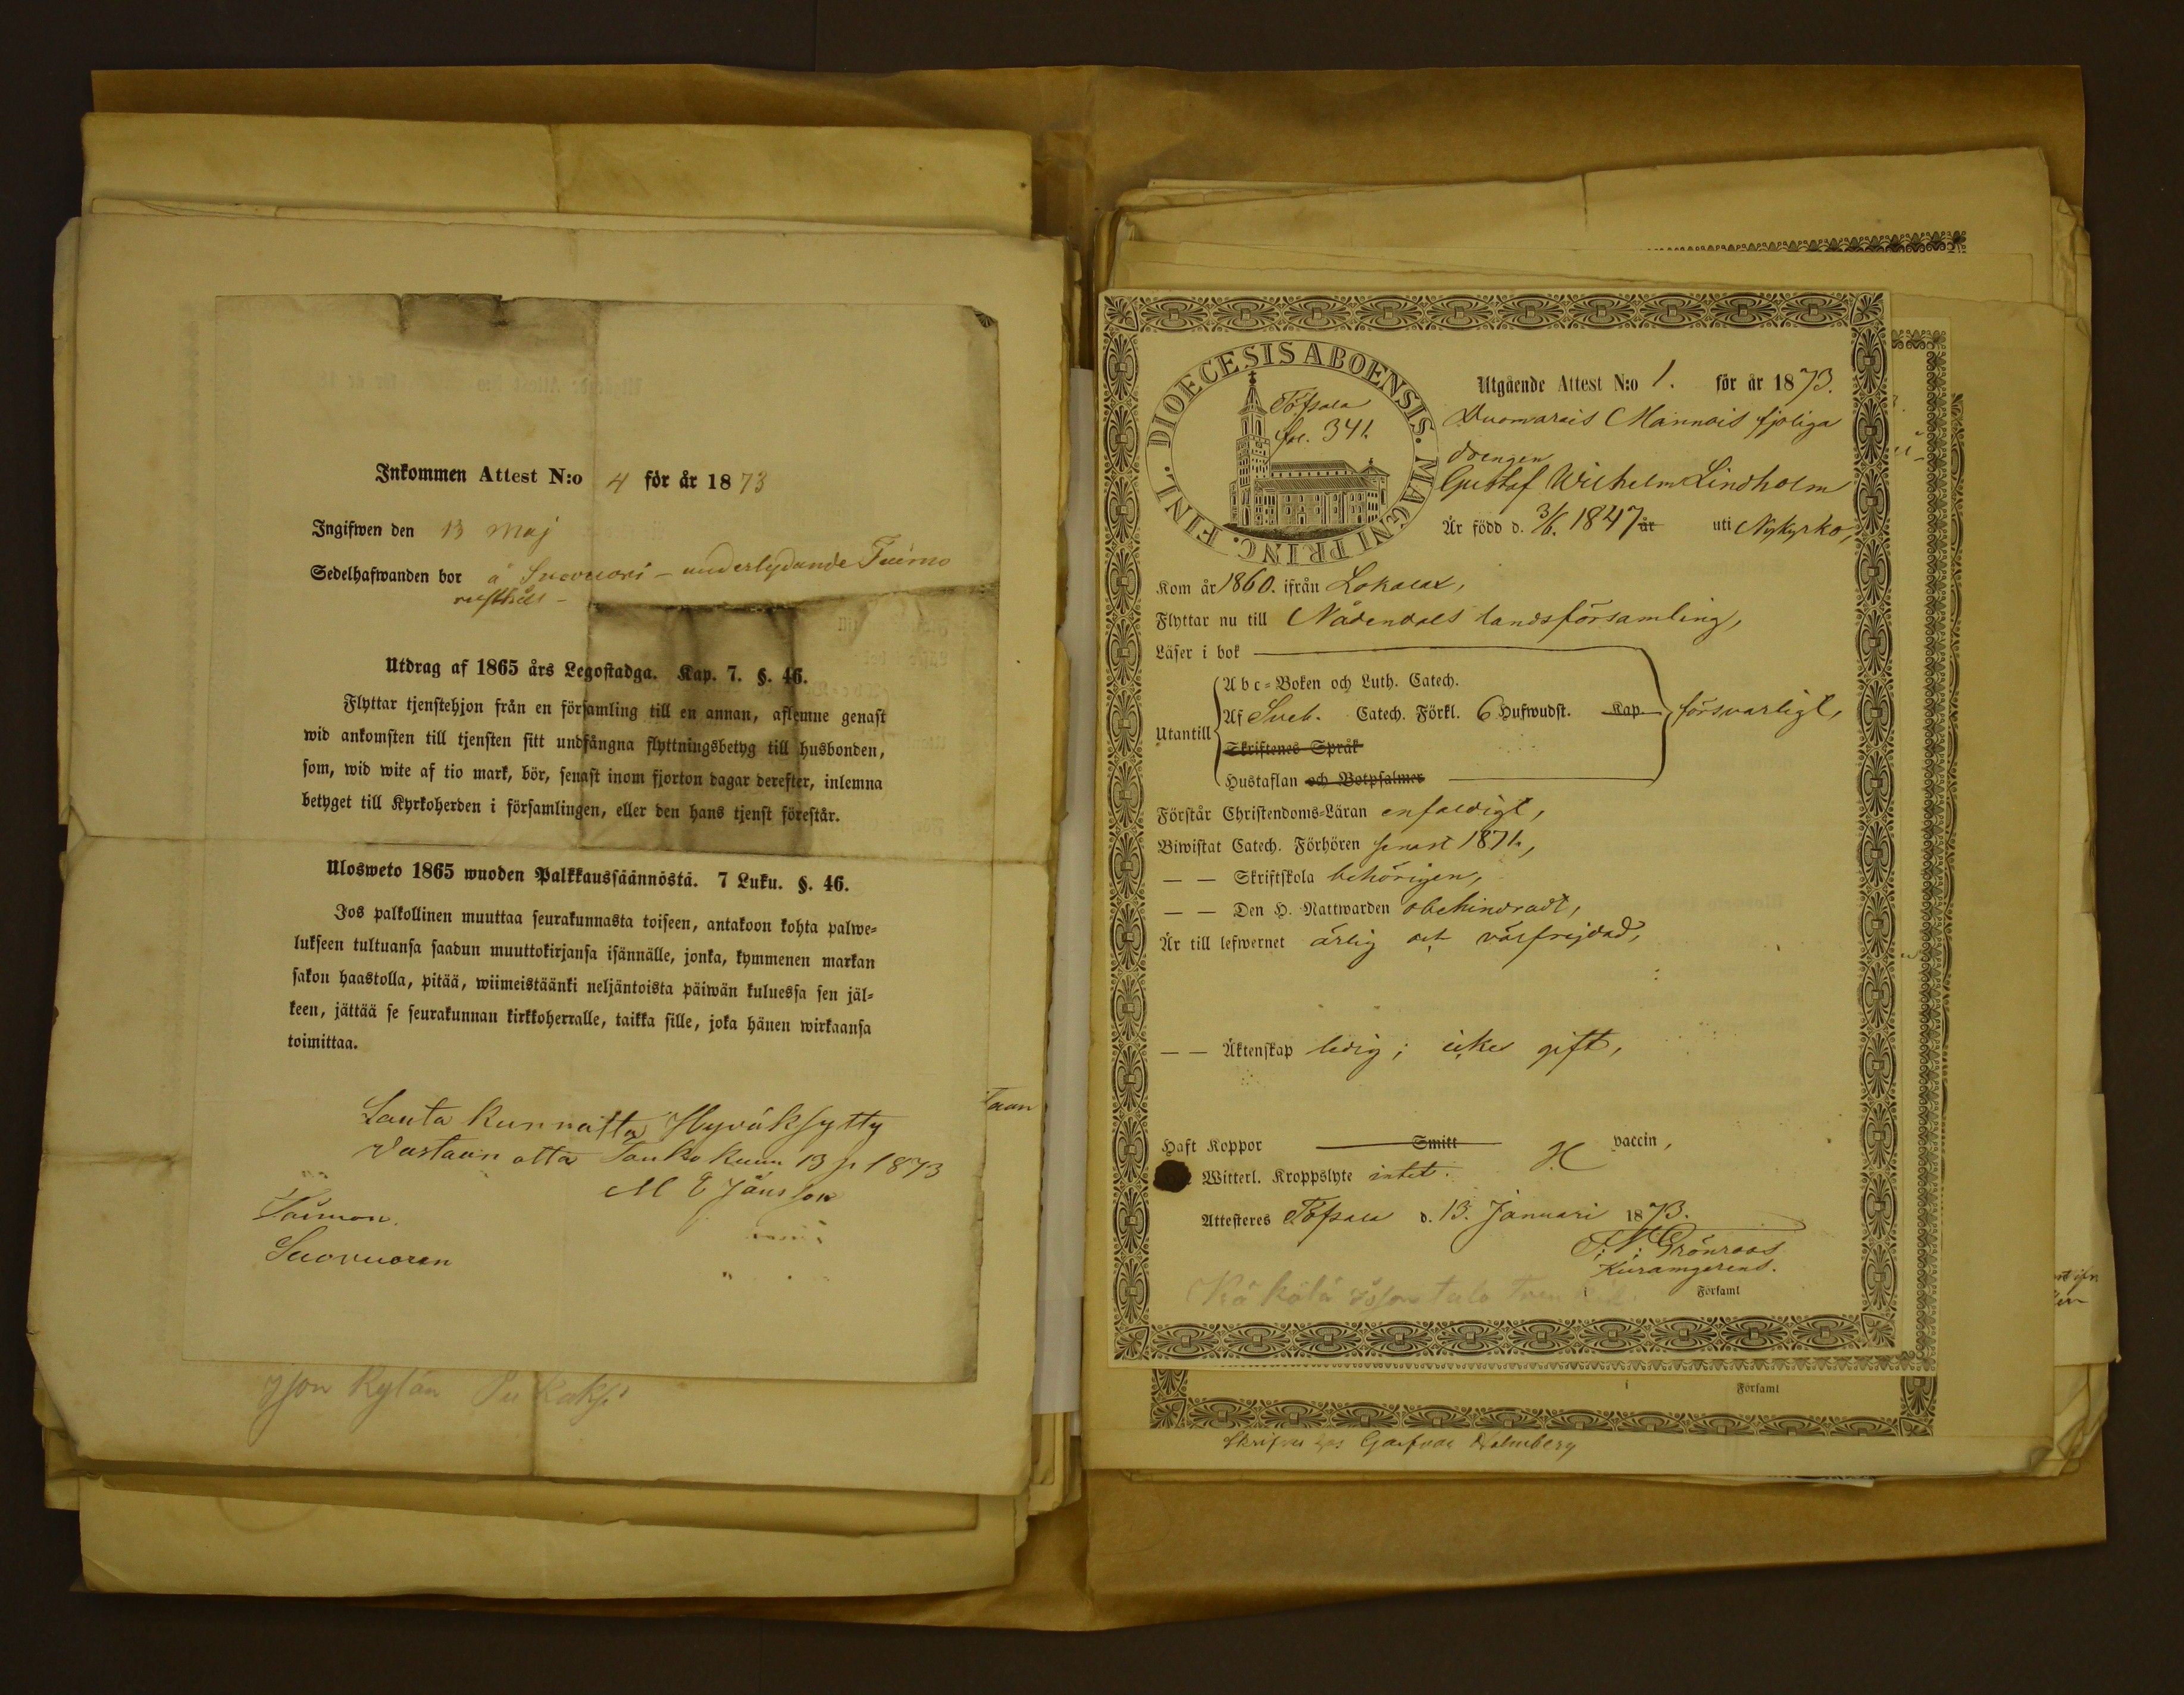 Inkommen Attest N:o 4 för år 1873
Ingifwen den 13 Maj
Sedelhafwanden bor å Suovuori - underlydande Tuimo
rusthåll -
Utdrag af 1865 års Legostadga. Kap. 7. §. 46.
Flyttar tjenstehjon från en församling till en annan, aflemne genast
wid ankomsten till tjensten sitt undfångna flyttningsbetyg till husbonden,
som, wid wite af tio mark, bör, senast inom fjorton dagar derefter, inlemna
betyget till Kyrkoherden i församlingen, eller den hans tjenst förestår.
Ulosweto 1865 wuoden Palkkaussäännöstä. 7 Luku. §. 46.
Jos palkollinen muuttaa seurakunnasta toiseen, antakoon kohta palwe-
lukseen tultuansa saadun muuttokirjansa isännälle, jonka, kymmenen markan
sakon haastolla, pitää, wiimeistäänki neljäntoista päiwän kuluessa sen jäl-
keen, jättää se seurakunnan kirkkoherralle, taikka sille, joka hänen wirkaansa
toimittaa.
Lauta kunnatta Hyväksytty
Vastaan otta Touko kuun 13 p 1873
M E Jansson
Suovuoren
yson kylän
DIOECESIS ABOENSIS. MAGNI PRINC. FINL.
Töfsala
fol. 341.
Utgående Attest N:o 1. för år 1873.
Mannois
drengen
Gustaf Wilhelm Lindholm
Är född d. 3/6. 1847 år uti Nykyrko,
Kom år 1860. ifrån Lokalax,
Flyttar nu till Nådendals landsförsamling,
Läser i bok
Utantill
Abc-Boken och Luth. Catech.
Af Sveb. Catech. Förkl. 6 Hufwudst. Kap. försvarligt,
Skriftenes Språk
Hustaflan och Botpsalmer
Förstår Christendoms-Läran enfaldigt,
Biwistat Catech. Förhören senast 1871,
— — Skriftskola behörigen,
— — Den H. Nattwarden obehindradt,
Är till lefwernet ärlig och välfrejdad,
— — Äktenskap ledig; icke gift,
Haft Koppor Smitt vaccin,
Witterl. Kroppslyte intet.
Attesteres Töfsala d. 13. Januari 1873.
Grönroos
i Församl
i Församl
Holmberg